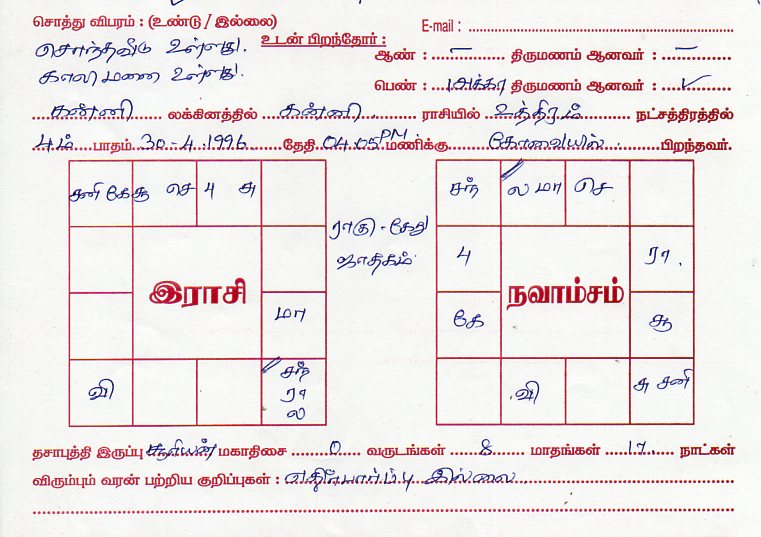 சொத்து விபரம் : (உண்டு / இல்லை) E-mail :
சொந்தவீடு உள்ளது. உடன் பிறந்தோர் : ஆண் : – திருமணம் ஆனவர் : –
காலிமனை உள்ளது. பெண் : 1அக்கா திருமணம் ஆனவர் : ✓
கன்னி லக்கினத்தில் கன்னி ராசியில் உத்திரம் நட்சத்திரத்தில்
4ம் பாதம் 30-4-1996 தேதி 04.05 PM மணிக்கு கோவையில் பிறந்தவர்.
சனி கே சூ செ பு சு
ராகு - கேது
ஜாதகம்
இராசி
மா
வி
சந்
ரா
ல
சந் ல மா செ
பு ரா.
நவாம்சம்
கே சூ
வி சு சனி
தசாபுத்தி இருப்பு சூரியன் மகாதிசை 0 வருடங்கள் 8 மாதங்கள் 17 நாட்கள்
விரும்பும் வரன் பற்றிய குறிப்புகள் : எதிர்பார்ப்பு இல்லை